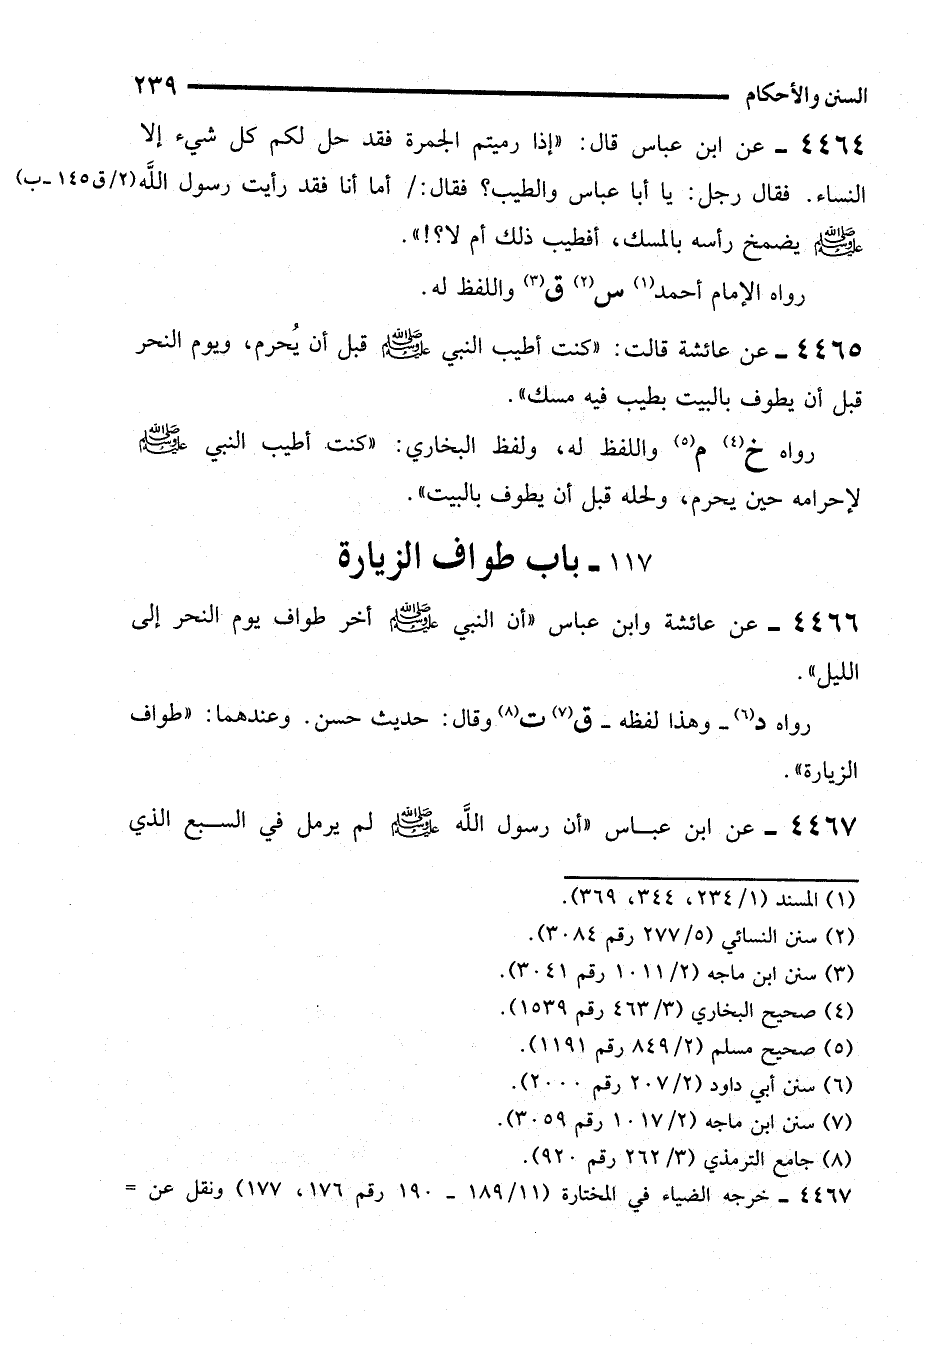 السنن والأحكام ٢٣٩
٤٤٦٤ ـ عن ابن عباس قال: «إذا رميتم الجمرة فقد حل لكم كل شيء إلا
النساء. فقال رجل: يا أبا عباس والطيب؟ فقال:/ أما أنا فقد رأيت رسول اللَّه (٢/ق١٤٥ـب)
ﷺ يضمخ رأسه بالمسك، أفطيب ذلك أم لا؟!».
رواه الإمام أحمد(١) س(٢) ق(٣) واللفظ له.
٤٤٦٥ ـ عن عائشة قالت: «كنت أطيب النبي ﷺ قبل أن يُحرم، ويوم النحر
قبل أن يطوف بالبيت بطيب فيه مسك».
رواه خ(٤) م(٥) واللفظ له، ولفظ البخاري: «كنت أطيب النبي ﷺ
لإحرامه حين يحرم، ولحله قبل أن يطوف بالبيت».
١١٧ ـ باب طواف الزيارة
٤٤٦٦ ـ عن عائشة وابن عباس «أن النبي ﷺ أخر طواف يوم النحر إلى
الليل».
رواه د(٦) ـ وهذا لفظه ـ ق(٧) ت(٨) وقال: حديث حسن. وعندهما: «طواف
الزيارة».
٤٤٦٧ ـ عن ابن عبـاس «أن رسول اللَّه ﷺ لم يرمل في السـبع الذي
(١) المسند (١/ ٢٣٤، ٣٤٤، ٣٦٩).
(٢) سنن النسائي (٥/ ٢٧٧ رقم ٣٠٨٤).
(٣) سنن ابن ماجه (٢/ ١٠١١ رقم ٣٠٤١).
(٤) صحيح البخاري (٣/ ٤٦٣ رقم ١٥٣٩).
(٥) صحيح مسلم (٢/ ٨٤٩ رقم ١١٩١).
(٦) سنن أبي داود (٢/ ٢٠٧ رقم ٢٠٠٠).
(٧) سنن ابن ماجه (٢/ ١٠١٧ رقم ٣٠٥٩).
(٨) جامع الترمذي (٣/ ٢٦٢ رقم ٩٢٠).
٤٤٦٧ ـ خرجه الضياء في المختارة (١١/ ١٨٩ ـ ١٩٠ رقم ١٧٦، ١٧٧) ونقل عن =